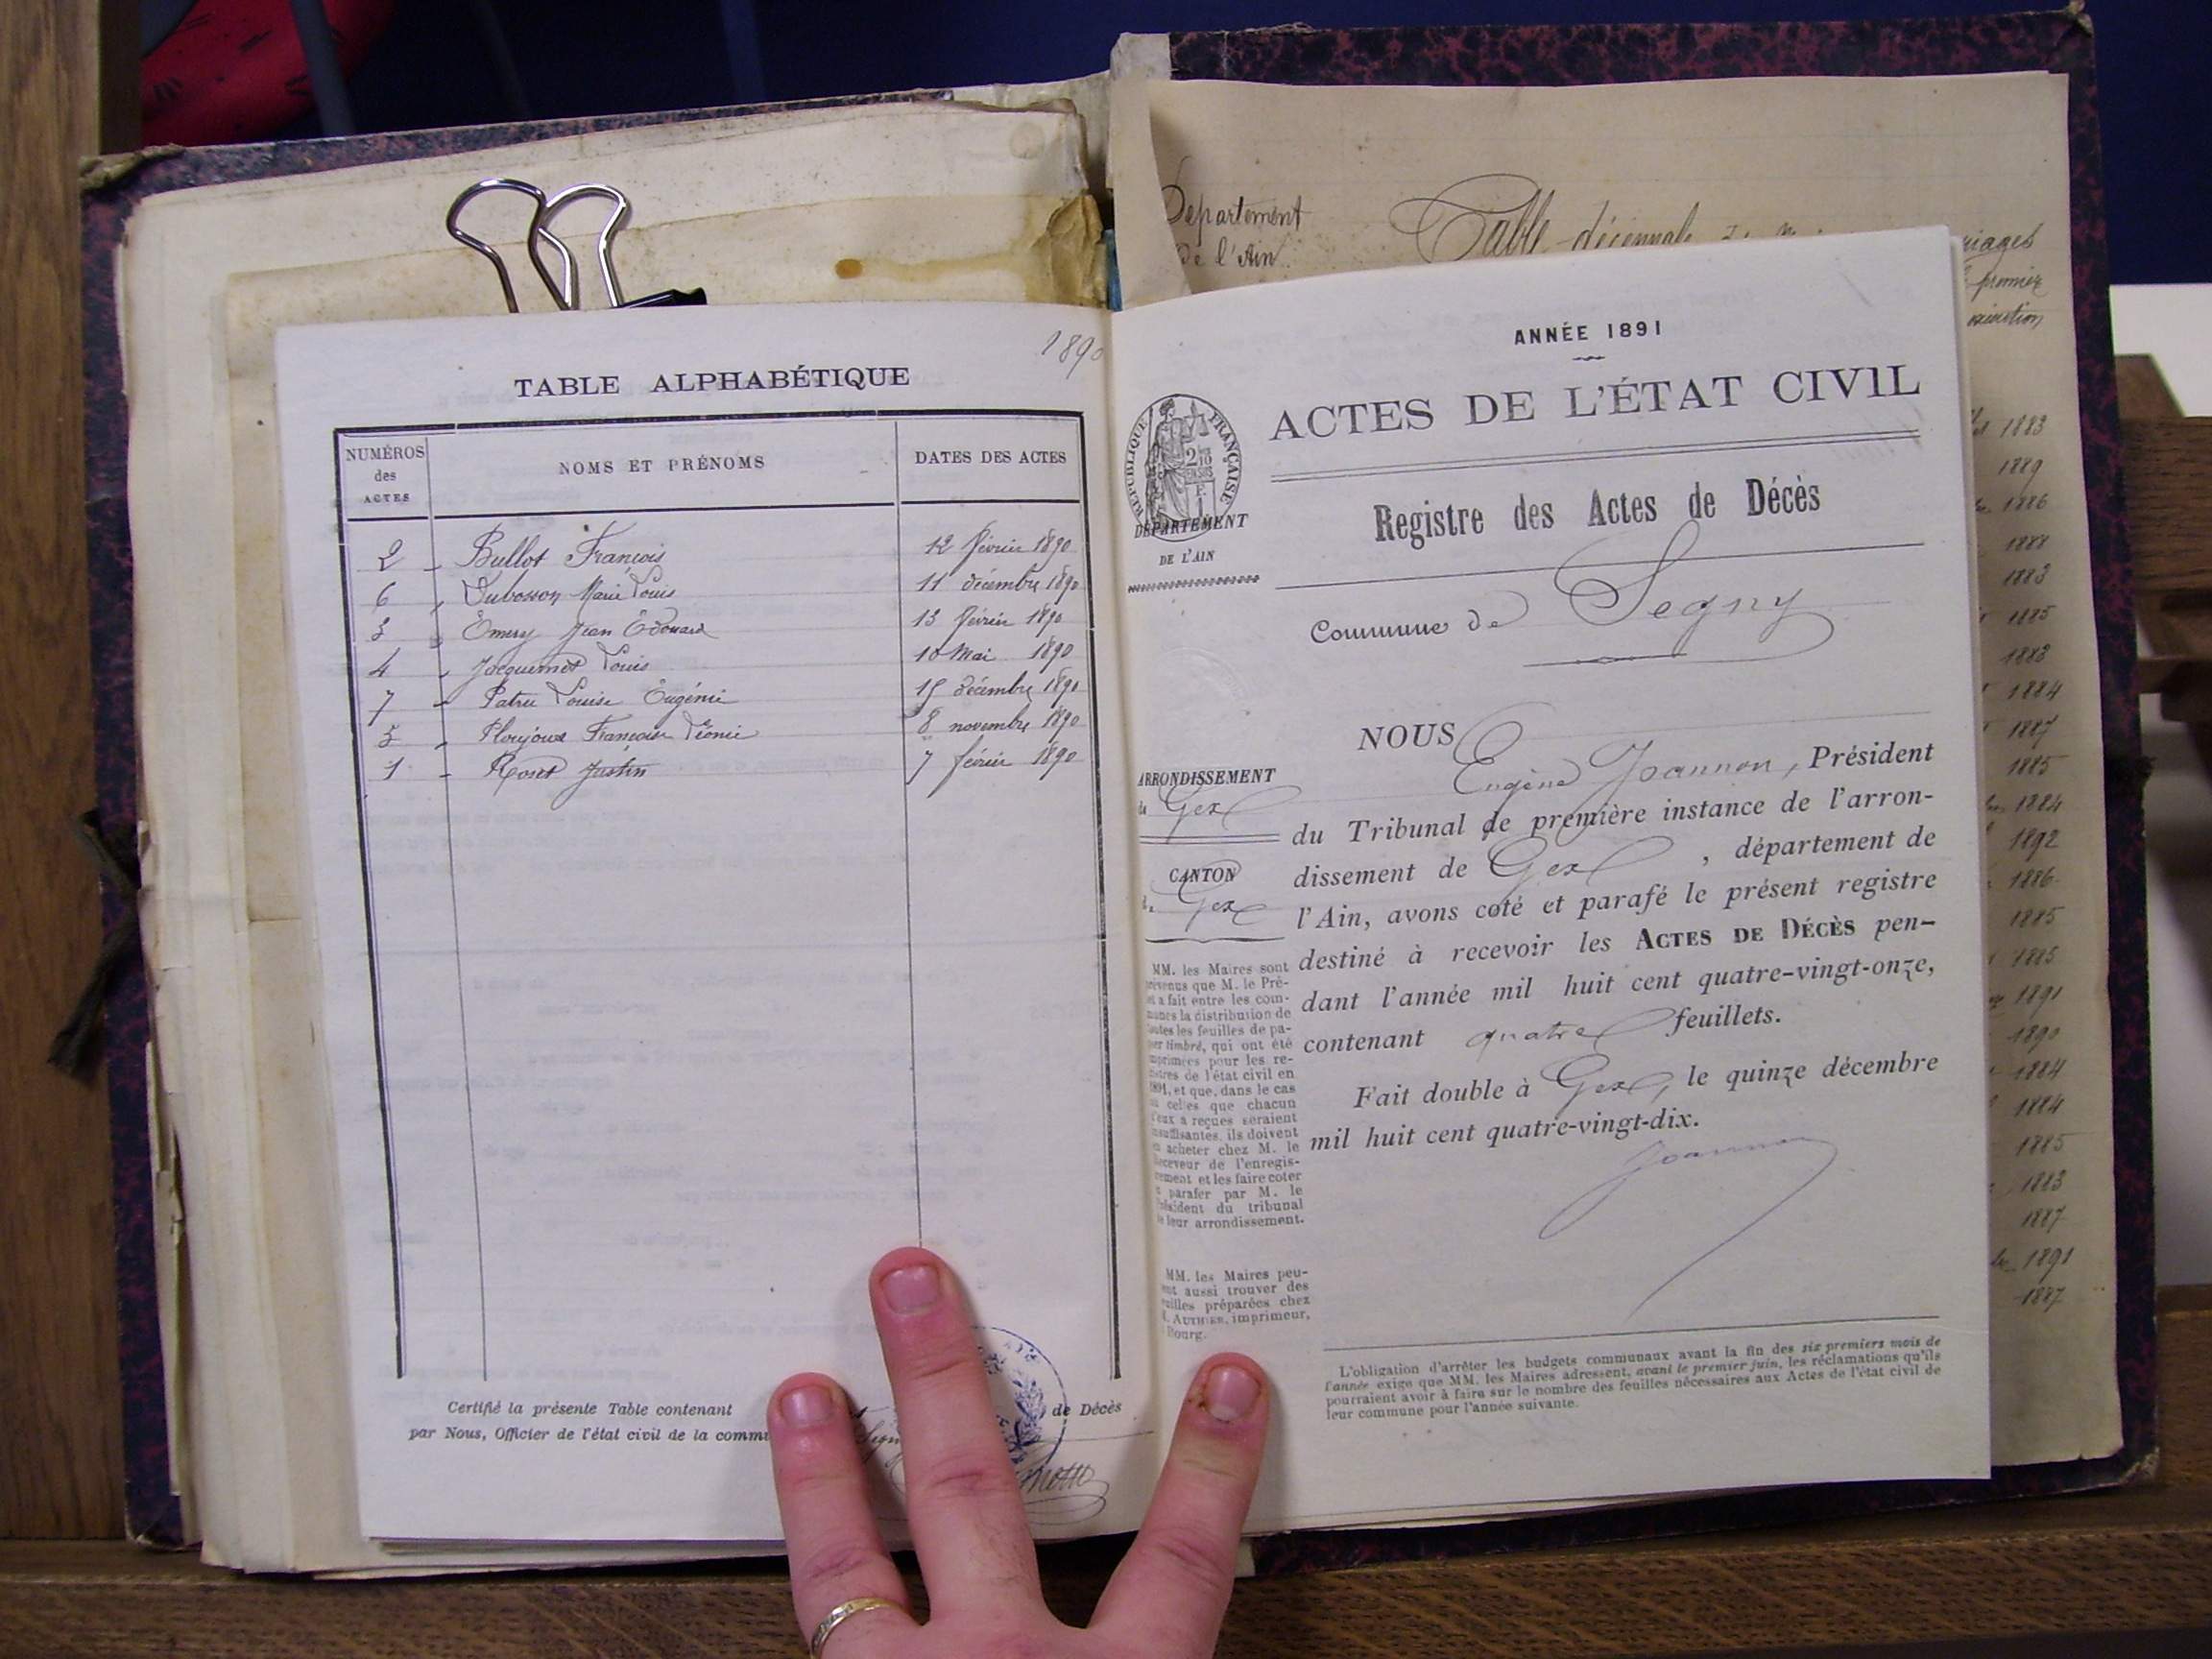 Département
de l'Ain
Table décennale
riages
premier
1883
1889
1886
1888
1883
1885
1883
1884
1887
1885
1884
1892
1886
1885
1885
1891
1890
1884
1884
1885
1883
1887
1891
1887
1890
TABLE ALPHABÉTIQUE
NUMÉROS des ACTES NOMS ET PRÉNOMS DATES DES ACTES
2 Bullot François 12 février 1890
6 Dubosson Marie Louis 11 décembre 1890
3 Emery Jean Edouard 13 février 1890
4 Jacquemet Louis 10 Mai 1890
7 Patru Louise Eugénie 15 décembre 1890
5 Françoise Léonie 8 novembre 1890
1 Roset Justin 7 février 1890
Certifié la présente Table contenant de Décès
par Nous, Officier de l'état civil de la commu
ANNÉE 1891
ACTES DE L'ÉTAT CIVIL
RÉPUBLIQUE FRANÇAISE
DÉPARTEMENT
DE L'AIN
Registre des Actes de Décès
Commune de Segny
ARRONDISSEMENT
de Gex
CANTON
de Gex
MM. les Maires sont
prévenus que M. le Pré-
et a fait entre les com-
munes la distribution de
toutes les feuilles de pa-
pier timbré, qui ont été
imprimées pour les re-
gistres de l'état civil en
1891, et que, dans le cas
où celles que chacun
d'eux a reçues seraient
insuffisantes, ils doivent
en acheter chez M. le
Receveur de l'enregis-
trement et les faire coter
et parafer par M. le
Président du tribunal
de leur arrondissement.
MM. les Maires peu-
vent aussi trouver des
feuilles préparées chez
M. AUTHIER, imprimeur,
à Bourg.
NOUS Eugène Joannon, Président
du Tribunal de première instance de l'arron-
dissement de Gex, département de
l'Ain, avons coté et parafé le présent registre
destiné à recevoir les ACTES DE DÉCÈS pen-
dant l'année mil huit cent quatre-vingt-onze,
contenant quatre feuillets.
Fait double à Gex, le quinze décembre
mil huit cent quatre-vingt-dix.
Joannon
L'obligation d'arrêter les budgets communaux avant la fin des six premiers mois de
l'année exige que MM. les Maires adressent, avant le premier juin, les réclamations qu'ils
pourraient avoir à faire sur le nombre des feuilles nécessaires aux Actes de l'état civil de
leur commune pour l'année suivante.